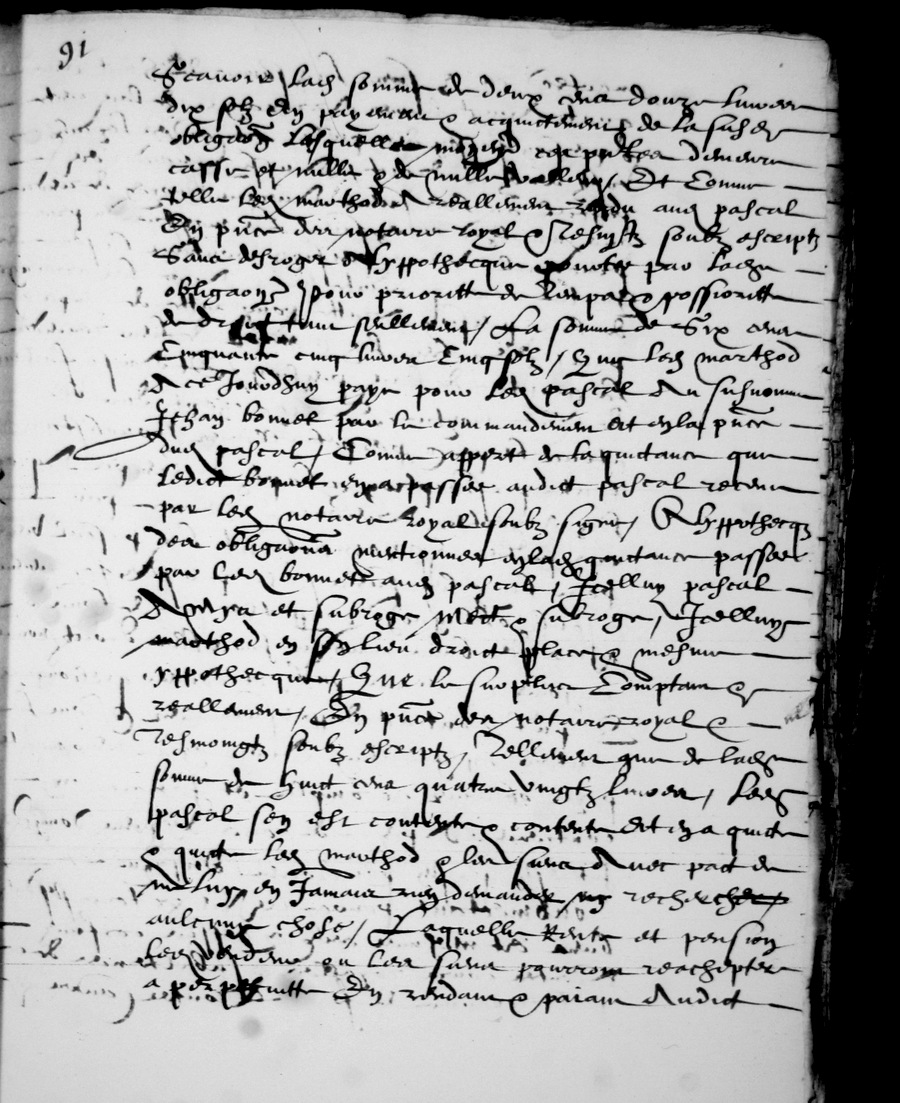 91
Scavoir lad somme de deux cens douze livres
dix solz en payement & acquictement de la susd
obligaon Lasquelle moyend ces pntes demeure
casse et nulle & de nulle valleur / Et comme
led marthod reallement au pascal
En pnce des notaire royal & tesmgtz soubz escriptz
Sans desroger a lhyppothecque pour lad
obligaon pour prioritte de temps & possioritte
de droict tant seullement / La somme de Six cens
Cinquante cinq livres Cinq solz / Que led marthod
A ce Jourdhuy paye pour led pascal Au susnomme
Jehan bonnet par le commandement et en la pnce
dud pascal / Comme appert de la quictance que
Ledict bonnet en a passee audict pascal receue
par led notaire royal soubz signe / A lhyppothecq
des obligaons mentionnees en lad quictance passee
par led bonnet aud pascal / Icelluy pascal
A mys et subroge mect & subroge / Icelluy
marthod en son lieu droict place & mesme
yppothecque / Que le surplus Comptant &
reallement / En pnce des notaire royal &
Tesmoingtz soubz escriptz / Tellement que de lad
somme de huict cens quatre vingtz livres / Led
pascal sen est contente & contente Et en a quicte
& quicte led marthod & les siens Avec pact de
ne luy en Jamais rien demander ny rechercher
aulcune chose / Laquelle Rente et pension
Led vendeur ou les siens pourront reachepter
a perpetuitte En rendant & paiant Audict